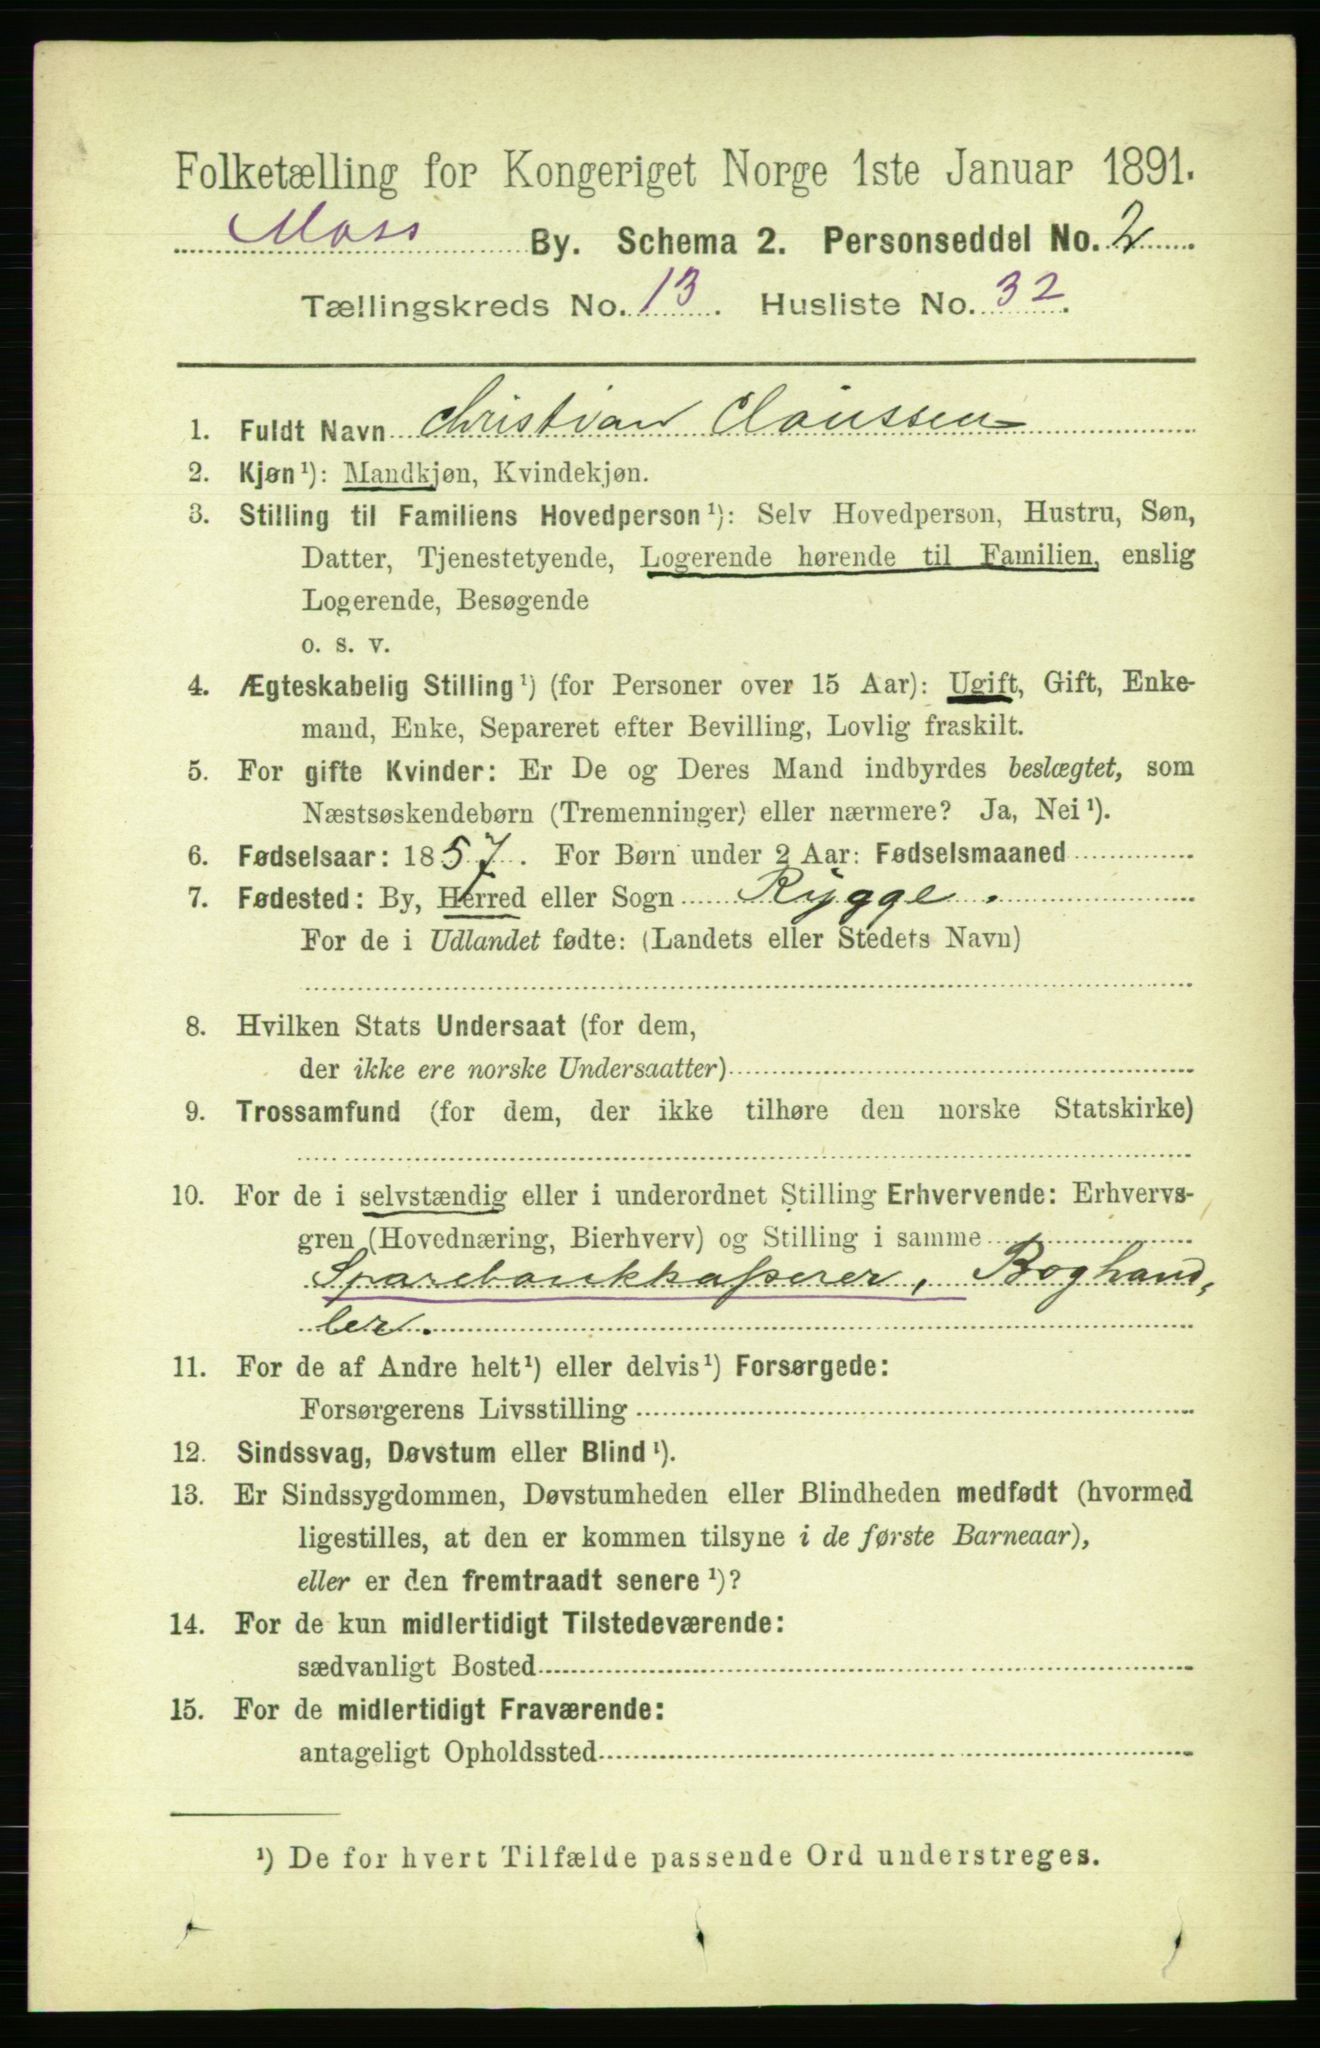 Folketælling for Kongeriget Norge 1ste Januar 1891.
Moss By. Schema 2. Personseddel No. 2
Tællingskreds No. 13. Husliste No. 32.
1. Fuldt Navn Christian Claussen
2. Kjøn¹): Mandkjøn, Kvindekjøn.
3. Stilling til Familiens Hovedperson¹): Selv Hovedperson, Hustru, Søn,
Datter, Tjenestetyende, Logerende hørende til Familien, enslig
Logerende, Besøgende
o. s. v.
4. Ægteskabelig Stilling¹) (for Personer over 15 Aar): Ugift, Gift, Enke-
mand, Enke, Separeret efter Bevilling, Lovlig fraskilt.
5. For gifte Kvinder: Er De og Deres Mand indbyrdes beslægtet, som
Næstsøskendebørn (Tremenninger) eller nærmere? Ja, Nei¹).
6. Fødselsaar: 1857. For Børn under 2 Aar: Fødselsmaaned
7. Fødested: By, Herred eller Sogn Rygge.
For de i Udlandet fødte: (Landets eller Stedets Navn)
8. Hvilken Stats Undersaat (for dem,
der ikke ere norske Undersaatter)
9. Trossamfund (for dem, der ikke tilhøre den norske Statskirke)
10. For de i selvstændig eller i underordnet Stilling Erhvervende: Erhvervs-
gren (Hovednæring, Bierhverv) og Stilling i samme
Sparebankkasserer, Boghand-
ler.
11. For de af Andre helt¹) eller delvis¹) Forsørgede:
Forsørgerens Livsstilling
12. Sindssvag, Døvstum eller Blind¹).
13. Er Sindssygdommen, Døvstumheden eller Blindheden medfødt (hvormed
ligestilles, at den er kommen tilsyne i de første Barneaar),
eller er den fremtraadt senere¹)?
14. For de kun midlertidigt Tilstedeværende:
sædvanligt Bosted
15. For de midlertidigt Fraværende:
antageligt Opholdssted
¹) De for hvert Tilfælde passende Ord understreges.